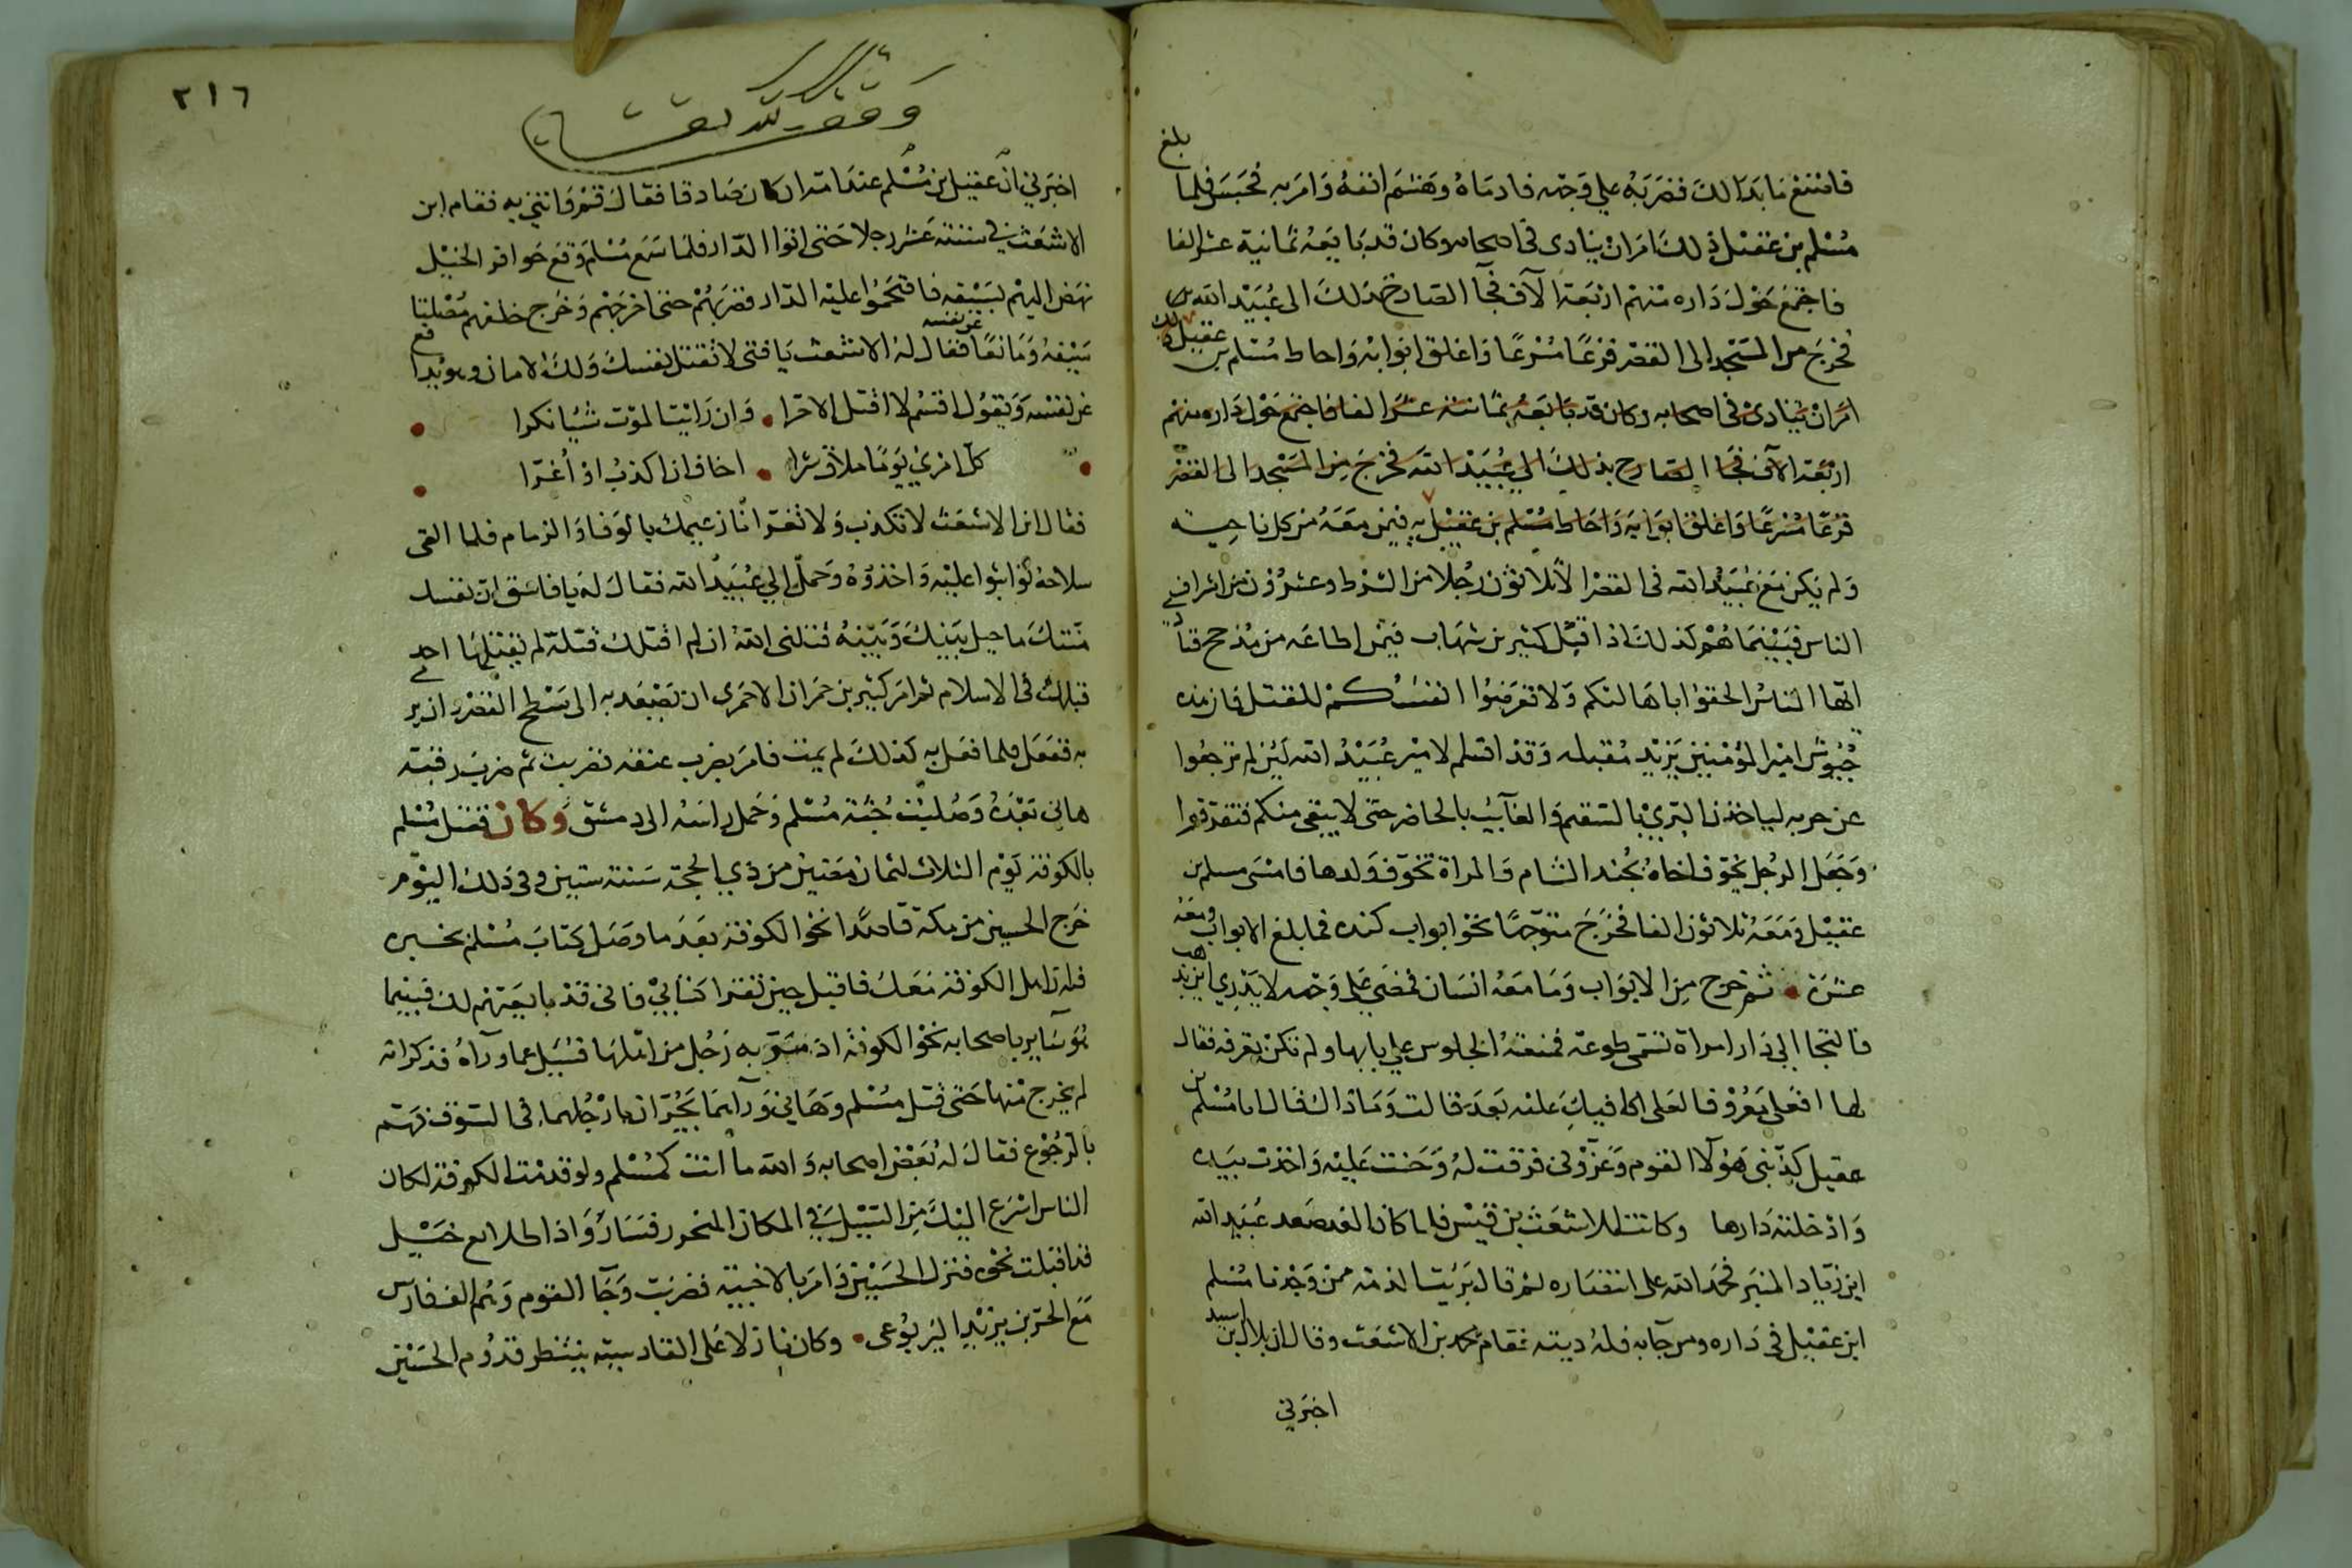 بلغ
فامتنع ما بدا لك فضربه علي وجهه فادماه وهشم انفه وامر به فحبس فلما
مسلم بن عقيل ذلك امر ان ينادى في اصحابه وكان قد بايعه ثمانية عشر الفا
فاجتمع حول داره منهم اربعة الآف فجآ الصارخ بذلك الى عبيد الله
فخرج من المسجد الى القصر فزعًا مسرعًا واغلق ابوابه واحاط مسلم بن عقيل
امر ان ينادى فى اصحابه وكان قد بايعه ثمانية عشر الفا فاجتمع حول داره منهم
اربعة الآف فجآ الصارح بذلك الي عبيد الله فخرج من المسجد الى القصر
فزعًا مسرعًا واغلق ابوابه واحاط مسلم بن عقيل به فيمن معه من كل ناحية
ولم يكن مع عبيد الله فى القصر الا ثلاثون رجلا من الشرط وعشرون من اشراف
الناس فبينما هم كذلك اذ اقبل كثير بن شهاب فيمن اطاعه من مذحج
ايها الناس الحقوا باهاليكم ولا تعرضوا انفسكم للقتل فان هذه
جيوش امير المؤمنين يزيد مقبله وقد اقسم لامير عبيد الله لين لم ترجعوا
عن حربه لياخذن البري بالسقيم والغآيب بالحاضر حتى لا يبقى منكم فتفرقوا
وجعل الرجل يخوف اخاه بجند الشام والمراة تخوف ولدها فامسى مسلم بن
عقيل ومعه ثلاثون الفا فخرج متوجها نحو ابواب كنده فما بلغ الابواب ومعه
عشرة ثم خرج من الابواب وما معه انسان فمضى على وجهه لا يدري اين يذهب
فالتجا الي دار امراة تسمى طوعة فمنعته الجلوس علي بابها ولم تكن تعرفه فقال
لها افعلى معروفا لعلى اكافيك عليه بعد قالت وما ذاك قال انا مسلم بن
عقيل كذبنى هؤلآ القوم وغروني فرقت له وحنت عليه واخذت بيده
وادخلته دارها وكانت للاشعث بن قيس فلما كان الغد صعد عبيد الله
ابن زياد المنبر فحمد الله على انتصاره ثم قال بريت الذمة ممن وجدنا مسلم
ابن عقيل في داره ومن جآ به فله ديته فقام محمد بن الاشعث وقال ان بلال بن اسيد
اخبرني
٢١٦
اخبرني ان عقيل بن مسلم عند امه ان كان صادقا فقال قم فاتني به فقام ابن
الاشعث في ستة عشر رجلا حتى اتوا الدار فلما سمع مسلم وقع حوافر الخيل
نهض اليهم بسيفه فاقتحموا عليه الدار فضربهم حتى اخرجهم وخرج خلفهم مصلتا
سيفه ومانعًا عن نفسه فقال له الاشعث يا فتى لا تقتل نفسك ولك الامان وهو يدافع
عن نفسه ويقول اقسم لا اقتل الا حرا وان رايت الموت شيئا نكرا
كل امرئ يومًا ملاق شرا اخاف ان اكذب او أغرا
فقال ابن الاشعث لا تكذب ولا تغر انا زعيمك بالوفا والذمام فلما القى
سلاحه تواثبوا عليه واخذوه وحمل الي عبيد الله فقال له يا فاسق ان نفسك
منتك ما حيل بينك وبينه قتلنى الله ان لم اقتلك قتلة لم يقتلها احد
قبلك فى الاسلام ثم امر كثير بن حمران الاحمرى ان يصعد به الى سطح القصر
به ففعل فلما فعل به كذلك لم يمت فامر بضرب عنقه فضربت ثم ضرب رقبة
هانى بعده وصلبت جثة مسلم وحمل راسه الى دمشق وكان قتل مسلم
بالكوفة يوم الثلاث لثمان مضين من ذي الحجة سنة ستين وفى ذلك اليوم
خرج الحسين من مكة قاصدا نحو الكوفة بعد ما وصل كتاب مسلم يخبره
فان اهل الكوفة معك فاقبل حين تقرا كتابي فانى قد بايعتهم لك فبينما
هو سآير باصحابه نحو الكوفة اذ مر به رجل من اهلها فسيل عما ورآه فذكر انه
لم يخرج منها حتى قتل مسلم وهاني ورآهما يجران بارجلهما فى السوق فهم
بالرجوع فقال له بعض اصحابه والله ما انت كمسلم ولو قدمت الكوفة لكان
الناس اسرع اليك من السيل في المكان المنحدر فسار واذا طلايع خيل
قد اقبلت نحوه فنزل الحسين وامر بالاخبية فضربت وجآ القوم وهم الف فارس
مع الحر بن يزيد اليربوعى وكان نازلا على القادسية ينتظر قدوم الحسين